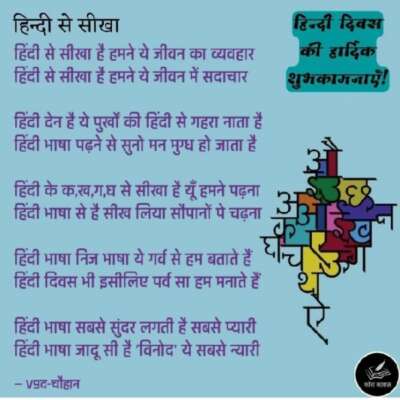 हिन्दी से सीखा
हिंदी से सीखा है हमने ये जीवन का व्यवहार
हिंदी से सीखा है हमने ये जीवन में सदाचार
हिंदी देन है ये पुर्खों की हिंदी से गहरा नाता है
हिंदी भाषा पढ़ने से सुनो मन मुग्ध हो जाता है
हिंदी के क,ख,ग,घ से सीखा है यूँ हमने पढ़ना
हिंदी भाषा से है सीख लिया सौपानों पे चढ़ना
हिंदी भाषा निज भाषा ये गर्व से हम बताते हैं
हिंदी दिवस भी इसीलिए पर्व सा हम मनाते हैं
हिंदी भाषा सबसे सुंदर लगती है सबसे प्यारी
हिंदी भाषा जादू सी है 'विनोद' ये सबसे न्यारी
– V9द-चौहान
हिन्दी दिवस
की हार्दिक
शुभकामनाएँ!
कोरा काग़ज़